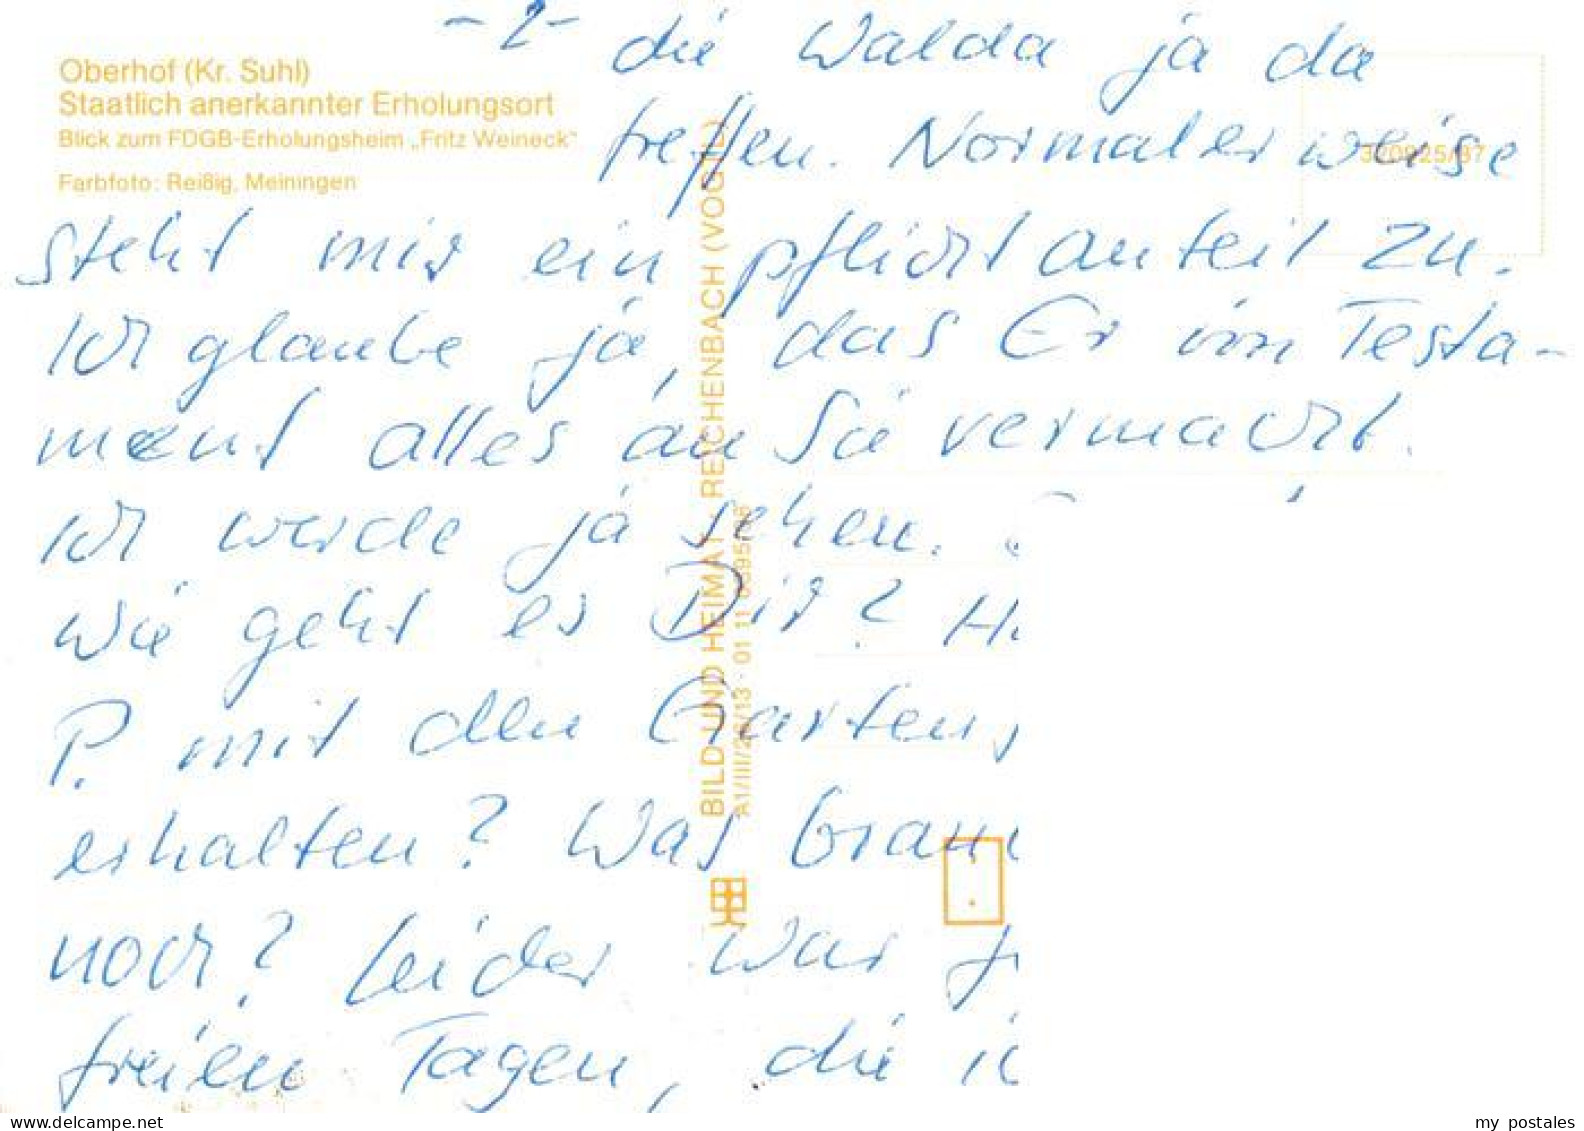 -2-
die Walda ja da
Oberhof (Kr. Suhl)
Staatlich anerkannter Erholungsort
Blick zum FDGB-Erholungsheim „Fritz Weineck“
Farbfoto: Reißig, Meiningen
treffen. Normalerweise
steht mir ein pflichtanteil zu.
Ich glaube ja, das Er im Testa-
ment alles an Sie vermacht.
Ich werde ja sehen.
Wie geht es Dir? H
P. mit den Garten
erhalten? Was brau
noch? Leider war
freien Tagen, die
BILD UND HEIMAT REICHENBACH (VOGTL)
A1/III/26/13 · 01 11
my postales
www.delcampe.net